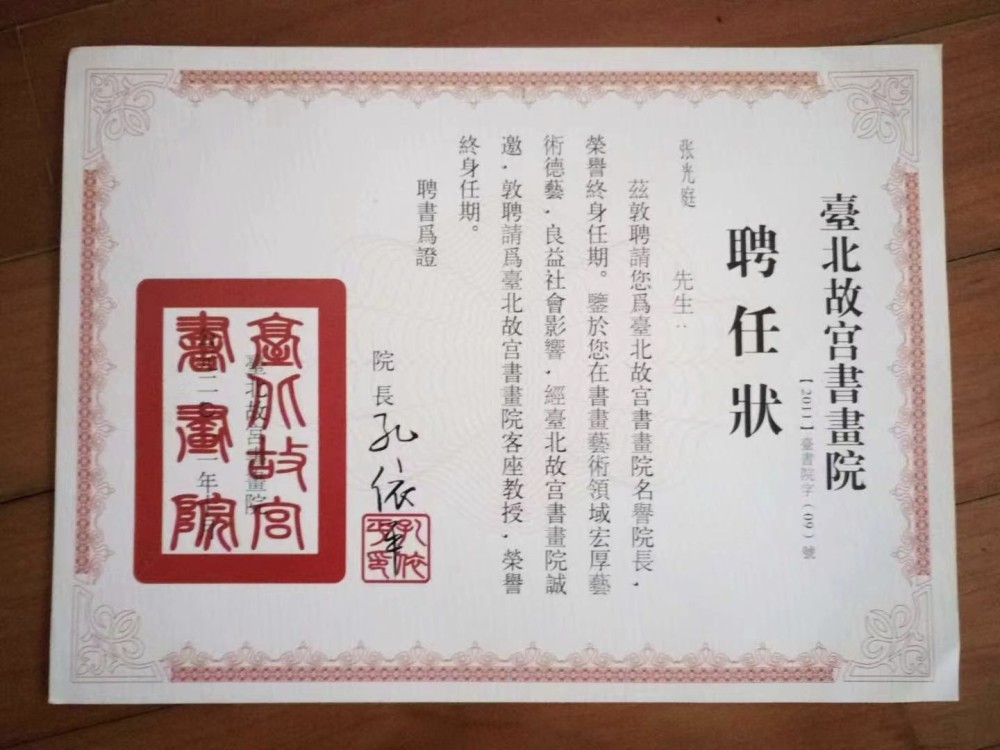 臺北故宮書畫院
聘任狀
【2011】臺書院字（09）號
张光庭　先生：
茲敦聘請您爲臺北故宮書畫院名譽院長，
榮譽終身任期。鑒於您在書畫藝術領域宏厚藝
術德藝，良益社會影響，經臺北故宮書畫院誠
邀，敦聘請爲臺北故宮書畫院客座教授，榮譽
終身任期。
聘書爲證
院長 孔依平
孔依平印
臺北故宮書畫院
臺北故宮
書畫院